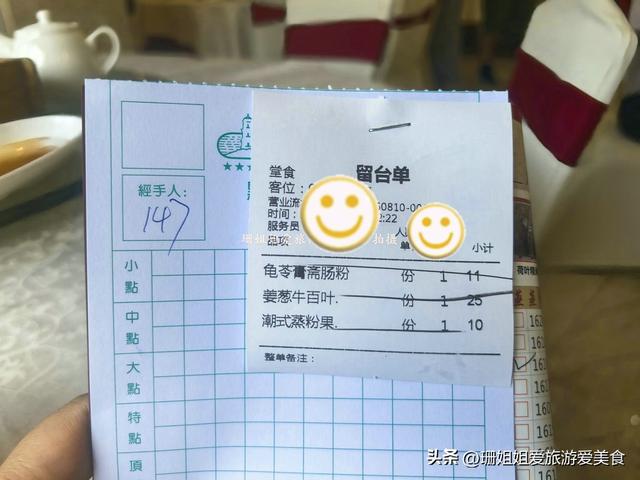 經手人:
147
小點
中點
大點
特點
頂
堂食
留台单
客位:
营业流
60810-00
时间:
2:22
服务员
品项
小计
龟苓膏斋肠粉 份 1 11
姜葱牛百叶. 份 1 25
潮式蒸粉果. 份 1 10
整单备注:
荷叶
162
161
160
161
珊姐姐爱旅
拍摄
头条 @珊姐姐爱旅游爱美食